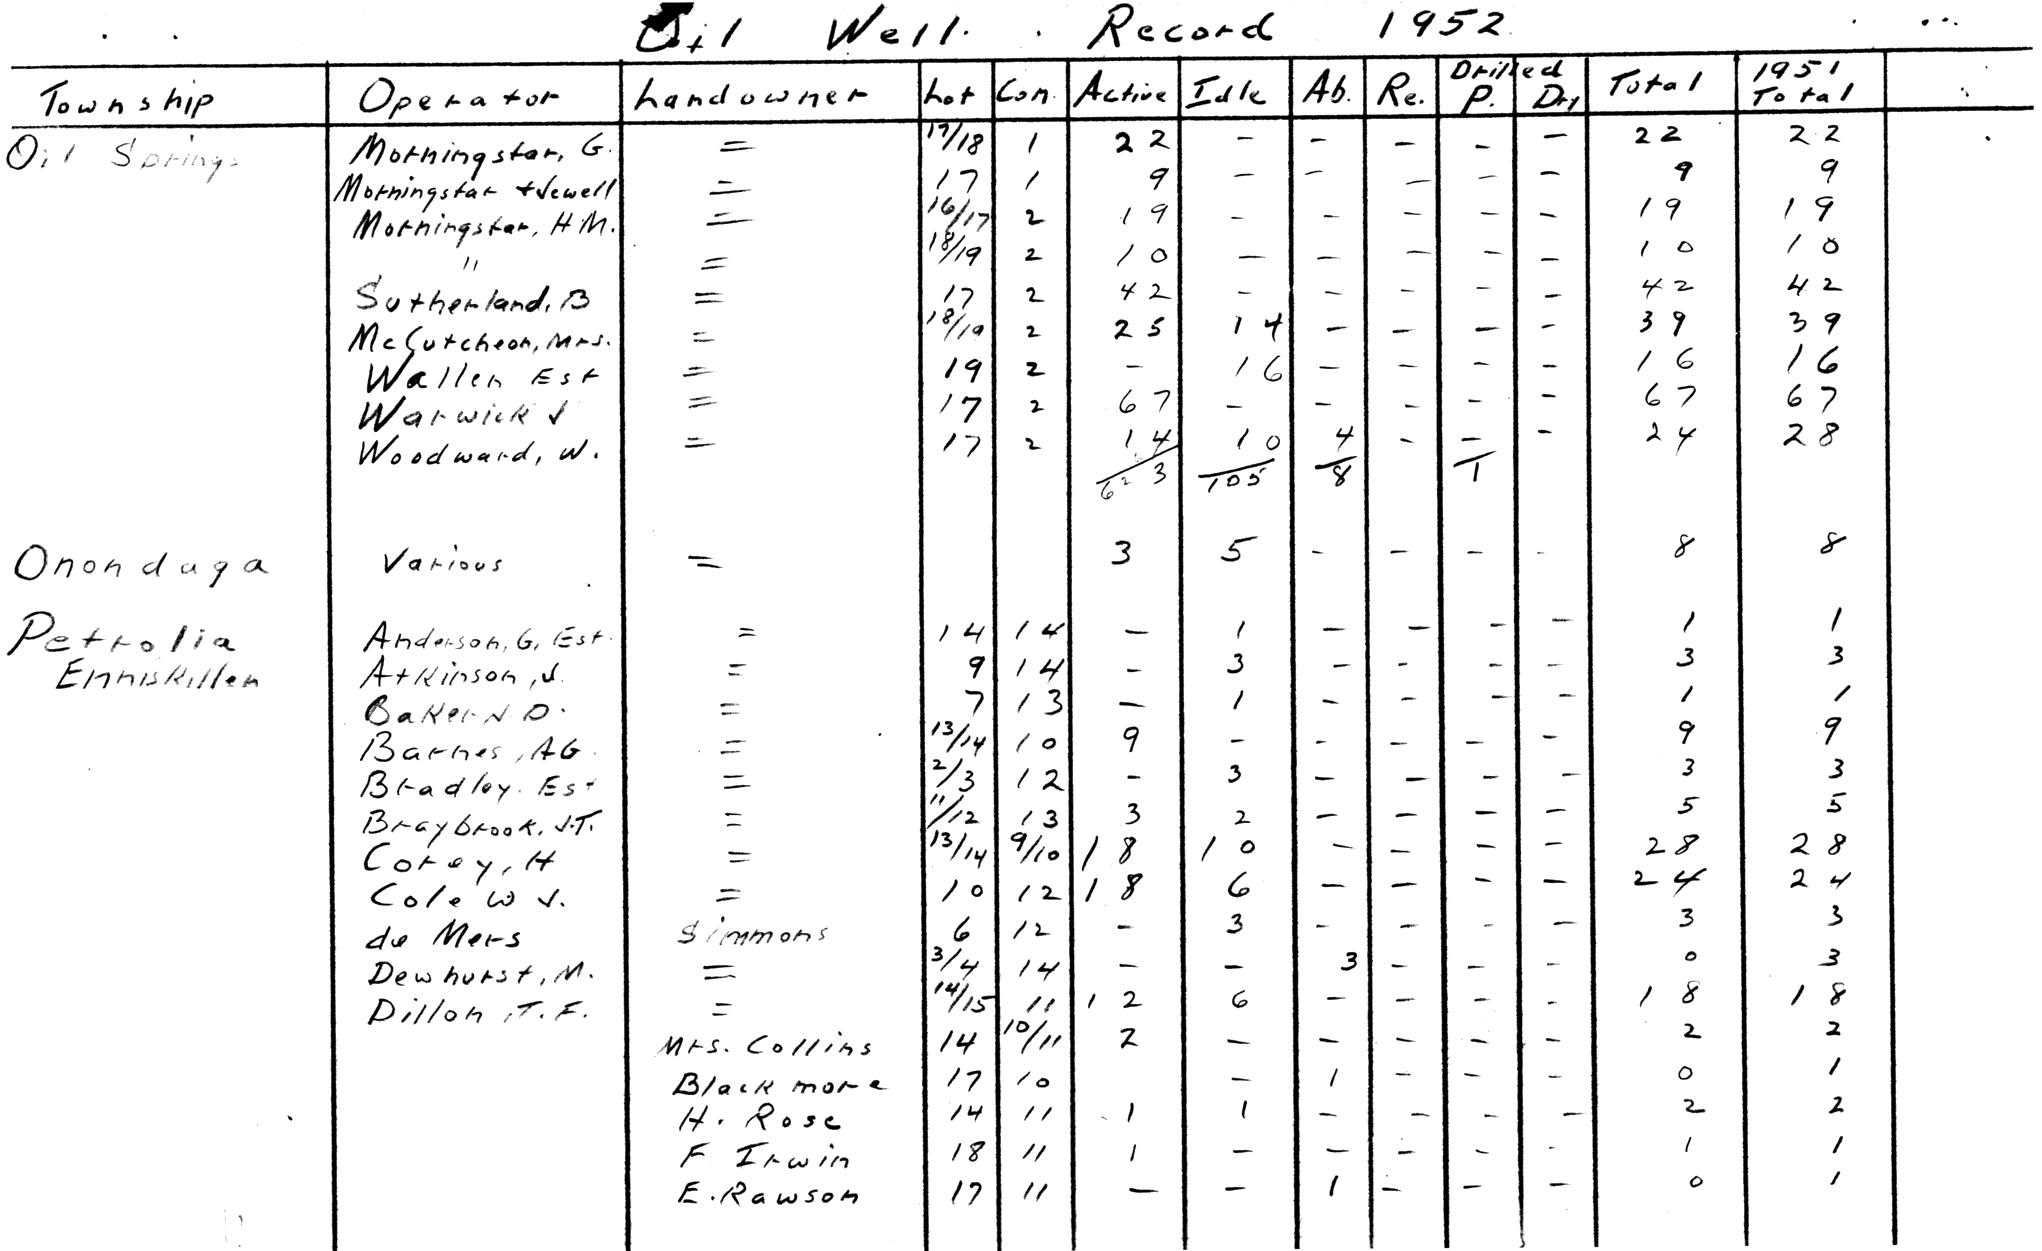 Oil Well Record 1952
Township Operator Landowner Lot Con. Active Idle Ab. Re. Drilled P. Dry Total 1951 Total
Oil Springs Morningstar, G. = 17/18 1 22 - - - - - 22 22
Morningstar + Jewell = 17 1 9 - - - - - 9 9
Morningstar, H.M. = 16/17 2 19 - - - - - 19 19
" = 18/19 2 10 - - - - - 10 10
Sutherland, B = 17 2 42 - - - - - 42 42
McCutcheon, Mrs. = 18/19 2 25 14 - - - - 39 39
Wallen Est = 19 2 - 16 - - - - 16 16
Warwick J = 17 2 67 - - - - - 67 67
Woodward, W. = 17 2 14 10 4 - - - 24 28
623 105 8 1
Onondaga Various = 3 5 - - - - 8 8
Petrolia Anderson, G, Est. = 14 14 - 1 - - - - 1 1
Enniskillen Atkinson, J. = 9 14 - 3 - - - - 3 3
Baker N.D. = 7 13 - 1 - - - - 1 1
Barnes, AG. = 13/14 10 9 - - - - - 9 9
Bradley. Est = 2/3 12 - 3 - - - - 3 3
Braybrook, J.T. = 11/12 13 3 2 - - - - 5 5
Corey, H = 13/14 9/10 18 10 - - - - 28 28
Cole W J. = 10 12 18 6 - - - - 24 24
de Mers Simmons 6 12 - 3 - - - - 3 3
Dewhurst, M. = 3/4 14 - - 3 - - - 0 3
Dillon, T. F. = 14/15 11 12 6 - - - - 18 18
Mrs. Collins 14 10/11 2 - - - - - 2 2
Blackmore 17 10 - 1 - - - 0 1
H. Rose 14 11 1 1 - - - - 2 2
F Irwin 18 11 1 - - - - - 1 1
E. Rawson 17 11 - - 1 - - - 0 1